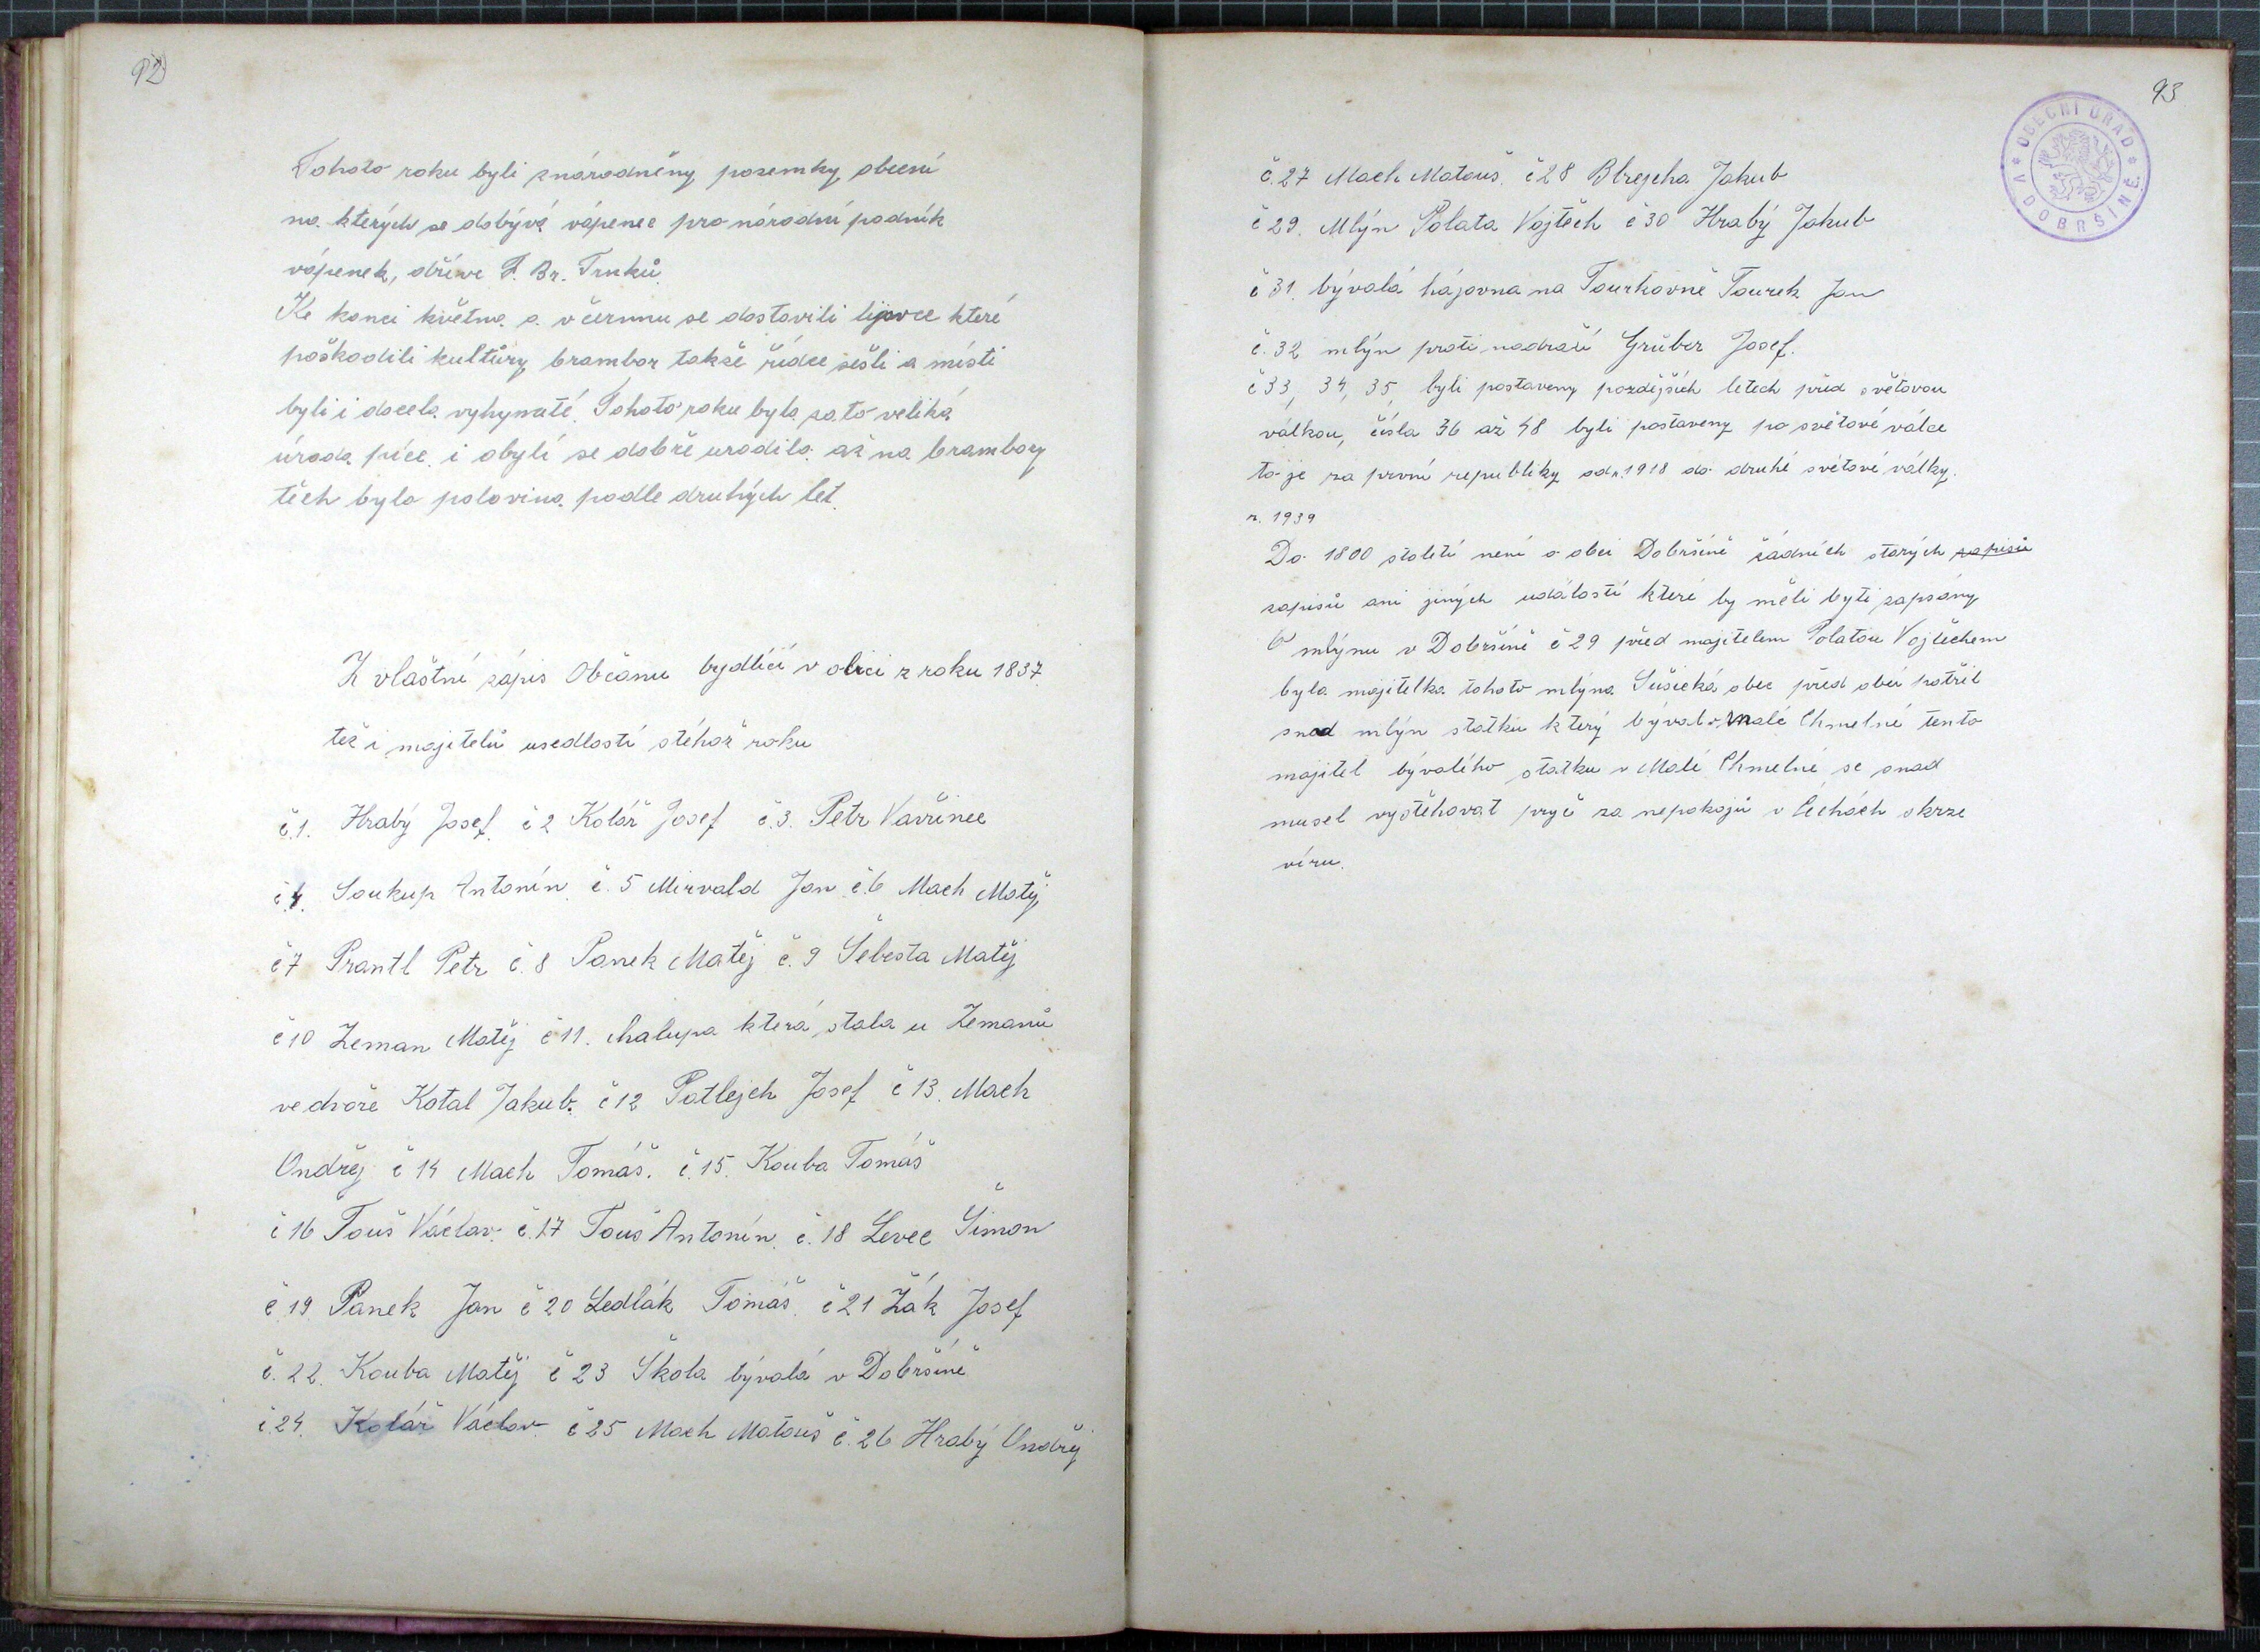 92
Tohoto roku byli znárodněny pozemky obecní
na kterých se dobývá vápenec pro národní podnik
vápenek, dříve F. Br. Trnků.
Ke konci května a včervnu se dostavili lijavce které
poškodili kultůry brambor takže řídce sešli a místi
byli i docela vyhynuté. Tohoto roku byla zato veliká
úroda píce i obylí se dobře urodilo až na brambory
těch byla polovina podle druhých let.
Zvlaštní zápis Občanu bydlící v obci z roku 1837.
též i majitelů usedlostí stéhož roku
č.1. Hrabý Josef. č 2 Kolář Josef č.3. Petr Vavřinec
č.4. Soukup Antonín č. 5 Mirvald Jan č.6 Mach Matěj
č 7 Prantl Petr č. 8 Panek Matěj č. 9 Šebesta Matěj
č 10 Zeman Matěj č 11. chalupa která stala u Zemanů
ve dvoře Kotal Jakub. č 12 Potlejch Josef č 13. Mach
Ondřej č 14 Mach Tomáš. č. 15. Kouba Tomáš
č 16 Touš Václav. č. 17 Touš Antonín. č. 18 Levec Šimon
č. 19. Panek Jan č 20 Sedlák Tomáš. č 21 Žák Josef
č. 22. Kouba Matěj č 23 Škola bývalá v Dobršíně
č. 24. Kolář Václav. č 25 Mach Matouš č. 26 Hrabý Ondřej
93
OBECNÍ ÚŘAD
V DOBRŠÍNĚ
č. 27 Mach Matouš. č 28 Blrejcha Jakub
č 29. Mlýn Polata Vojtěch č 30 Hrabý Jakub
č 31. bývalá hájovna na Tourkovně Tourek Jan
č. 32 mlýn proti nadraží Grüber Josef.
č 33, 34, 35, byli postaveny pozdějších letech před světovou
válkou, čísla 36 až 48 byli postaveny po světové válce
to je za první republiky od r. 1918 do druhé světové války.
r. 1939
Do 1800 století není o obci Dobršíně žádních starých zapisů
zapisů ani jiných událostí které by měli byti zapsány
O mlýnu v Dobršíně č 29 před majitelem Polatou Vojtěchem
byla majitelka tohoto mlýna Sušická obec před obcí patřil
snad mlýn statku který býval v Malé Chmelné tento
majitel bývalého statku v Malé Chmelné se snad
musel vystěhovat pryč za nepokojů v Čechách skrze
víru.